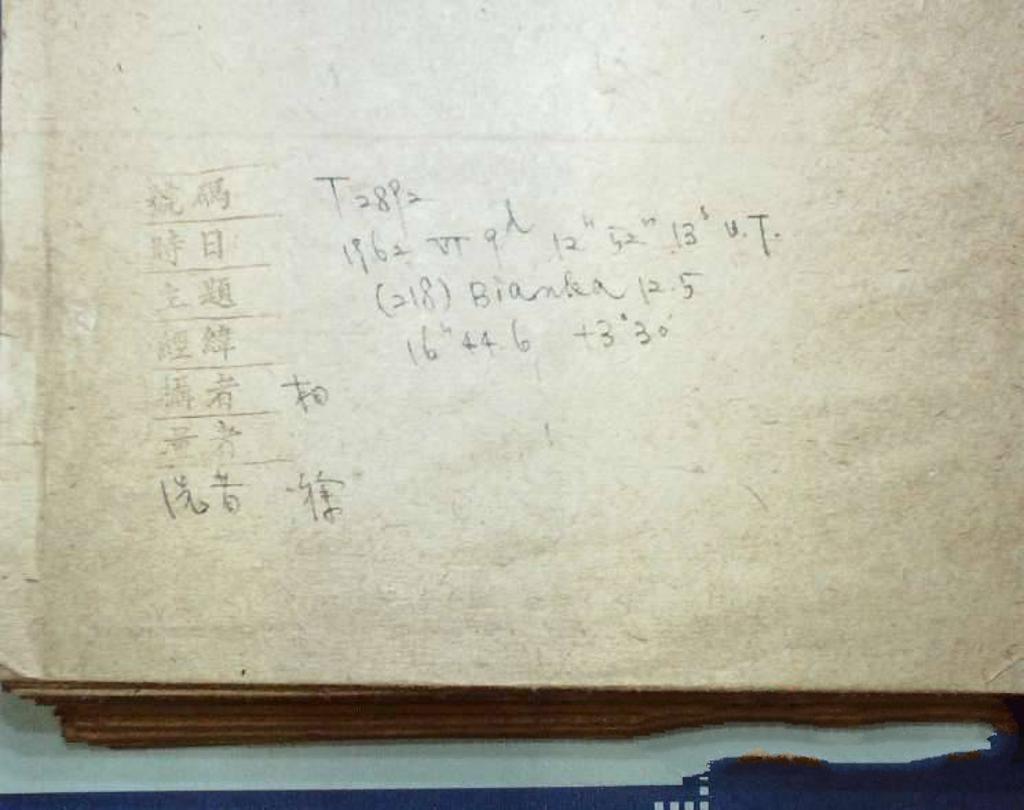 號碼 T2892
時日 1962 VI 9d 12h 52m 13s U.T.
主題 (218) Bianka 12.5
經緯 16h44.6 +3°30'
攝者 柏
量者
洗者 徐